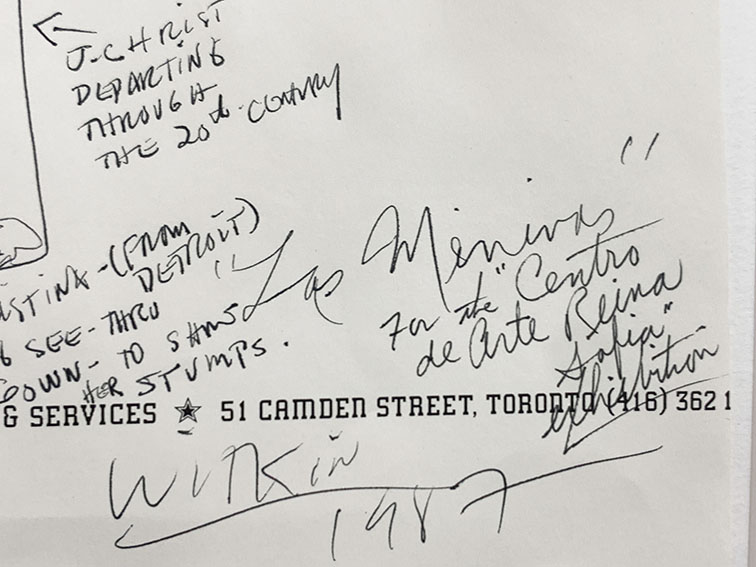 J-CHRIST
DEPARTING
THROUGH
THE 20th CENTURY
-(FROM
DETROIT)
SEE-THRU
GOWN- TO SHOW
HER STUMPS.
"Las Meninas"
For the "Centro
de Arte Reina
Sofia"
exhibition
& SERVICES ★ 51 CAMDEN STREET, TORONTO (416) 362 1
WITKIN
1987